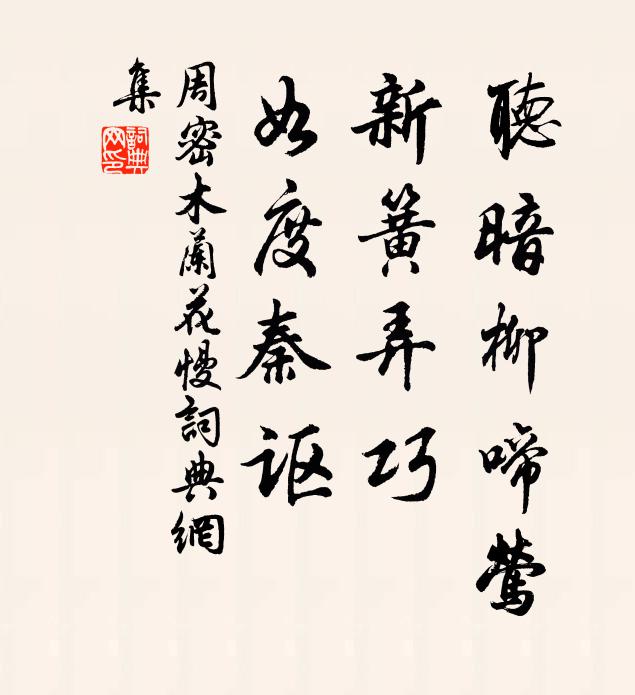 聽暗柳啼鶯
新簧弄巧
如度秦讴
周密木蘭花慢詞典網
集
詞典
网印